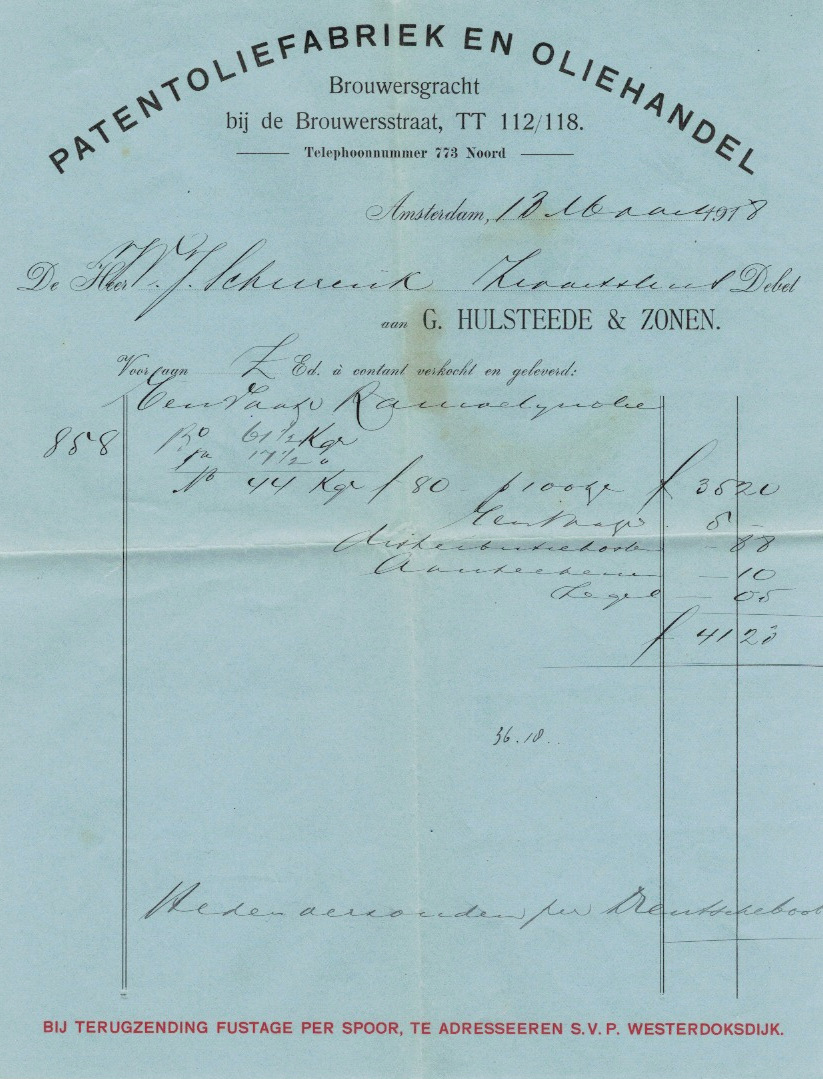 PATENTOLIEFABRIEK EN OLIEHANDEL
Brouwersgracht
bij de Brouwersstraat, TT 112/118.
Telephoonnummer 773 Noord
Amsterdam, 13 Maart 1918
De Heer W. J. Schureink Zwartsluis Debet
aan G. HULSTEEDE & ZONEN.
Voor aan Z Ed. à contant verkocht en geleverd:
Een Vaatje
858 Bo 61 1/2 Kgr
Ta 17 1/2 "
No 44 Kgr f 80 p 100 Kgr f 35 20
Een Vaatje 5 -
distributiekosten - 88
Aanteekenen - 10
Zegel - 05
f 41 23
36.18..
Heden verzonden per Drentscheboot
BIJ TERUGZENDING FUSTAGE PER SPOOR, TE ADRESSEEREN S.V.P. WESTERDOKSDIJK.